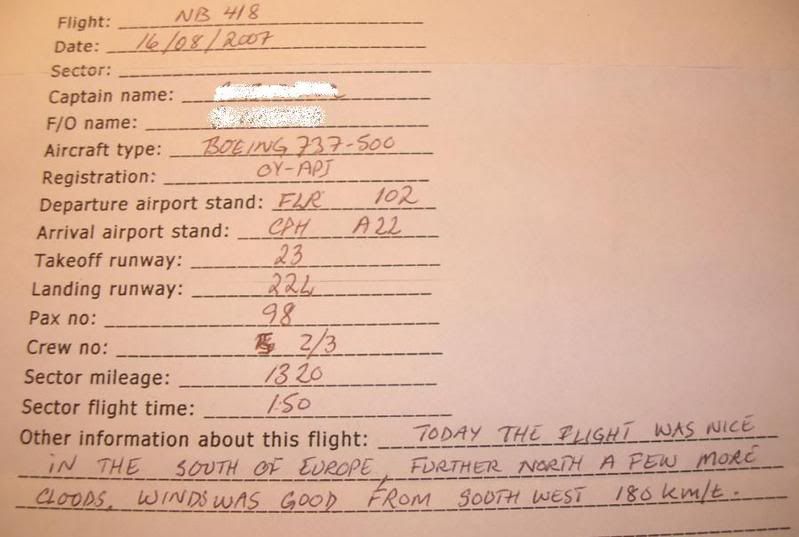 Flight: NB 418
Date: 16/08/2007
Sector:
Captain name:
F/O name:
Aircraft type: BOEING 737-500
Registration: OY-API
Departure airport stand: FLR 102
Arrival airport stand: CPH A22
Takeoff runway: 23
Landing runway: 22L
Pax no: 98
Crew no: 2/3
Sector mileage: 1320
Sector flight time: 1:50
Other information about this flight: TODAY THE FLIGHT WAS NICE
IN THE SOUTH OF EUROPE, FURTHER NORTH A FEW MORE
CLOODS. WINDS WAS GOOD FROM SOUTH WEST 180 km/t.